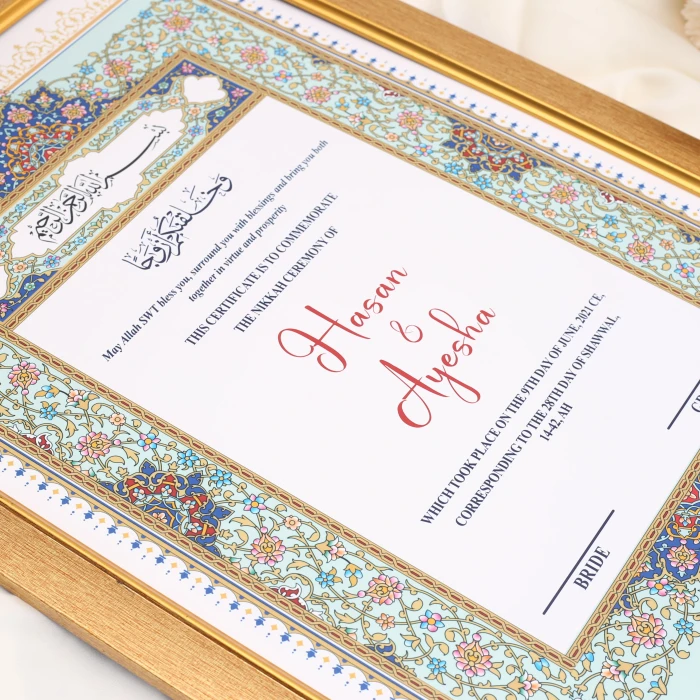 بسم الله الرحمن الرحيم
وخلقنكم أزوجا
May Allah SWT bless you, surround you with blessings and bring you both
together in virtue and prosperity
THIS CERTIFICATE IS TO COMMEMORATE
THE NIKKAH CEREMONY OF
Hasan
&
Ayesha
WHICH TOOK PLACE ON THE 9TH DAY OF JUNE, 2021 CE,
CORRESPONDING TO THE 28TH DAY OF SHAWWAL,
14-42, AH
BRIDE